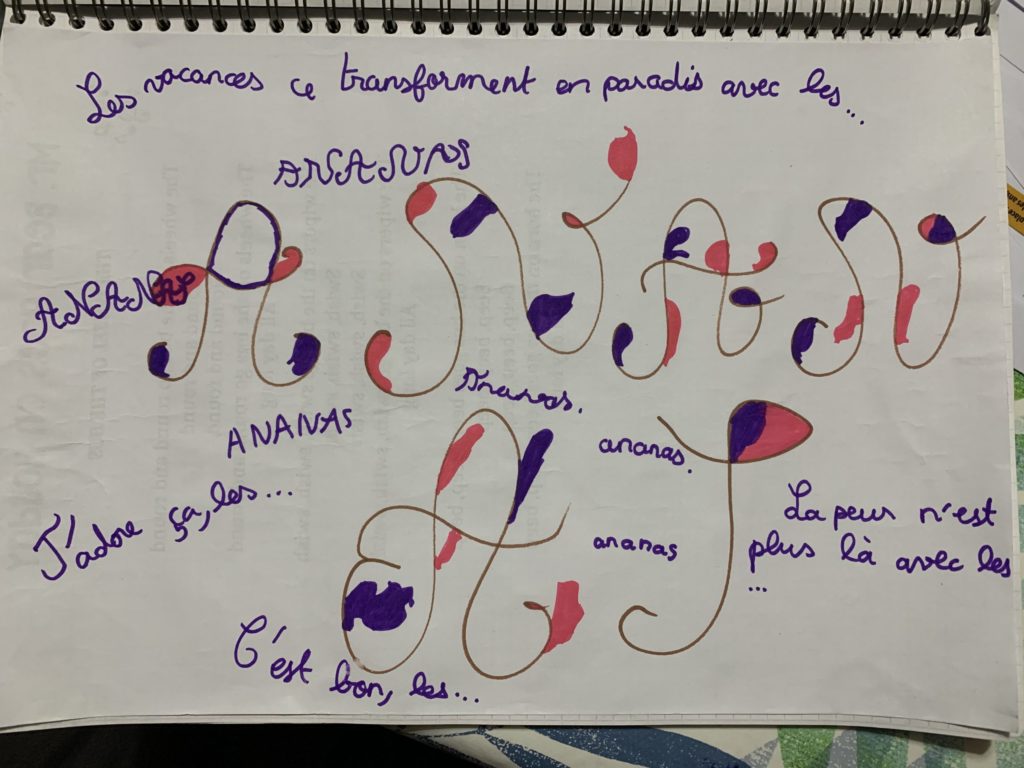 Les vacances ce transforment en paradis avec les...
ANANAS
ANANAS
A N A N
Ananas.
ANANAS
ananas.
A S
J'adore ça, les...
La peur n'est
plus là avec les
...
ananas
C'est bon, les...